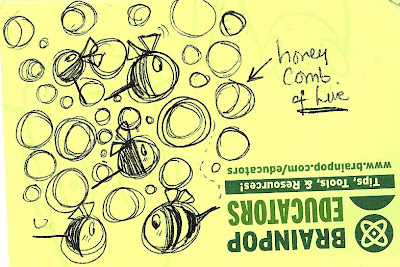 honey
comb.
of hive
www.brainpop.com/educators
Tips, Tools, & Resources!
EDUCATORS
BRAINPOP